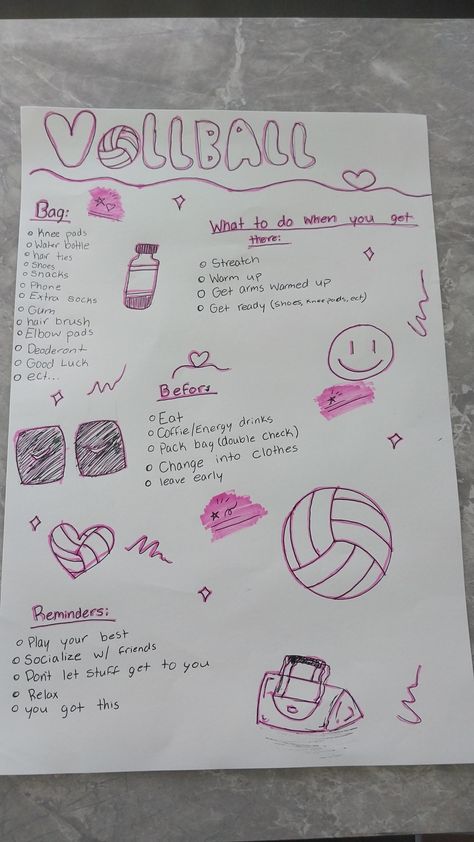 VOLLBALL
Bag:
Knee pads
Water bottle
hair ties
Shoes
Snacks
Phone
Extra socks
Gum
hair brush
Elbow pads
Deoderont
Good Luck
ect...
What to do when you get
there:
Streatch
Warm up
Get arms warmed up
Get ready (shoes, Knee pads, ect)
Befor:
Eat
Coffie/Energy drinks
Pack bag (double check)
Change into clothes
leave early
Reminders:
Play your best
Socialize w/ friends
Don't let stuff get to you
Relax
you got this